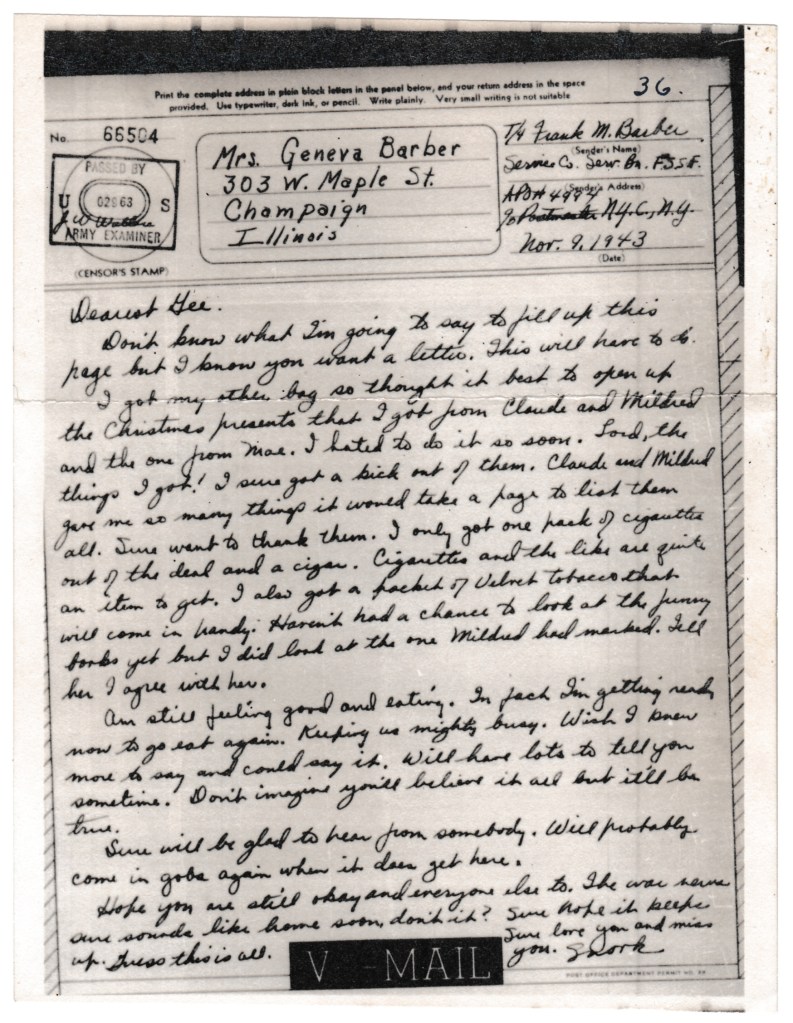 Print the complete address in plain block letters in the panel below, and your return address in the space
provided. Use typewriter, dark ink, or pencil. Write plainly. Very small writing is not suitable
36.
No. 66504
PASSED BY
U S
02963
ARMY EXAMINER
(CENSOR'S STAMP)
Mrs. Geneva Barber
303 W. Maple St.
Champaign
Illinois
T/4 Frank M. Barber
(Sender's Name)
Service Co. Serv. Bn. F.S.S.F.
(Sender's Address)
APO# 4994
℅ Postmaster N.Y.C., N.Y.
Nov. 9, 1943
(Date)
Dearest Gee.
Don't know what I'm going to say to fill up this
page but I know you want a letter. This will have to do.
I got my other bag so thought it best to open up
the Christmas presents that I got from Claude and Mildred
and the one from Mae. I hated to do it so soon. Lord, the
things I got! I sure got a kick out of them. Claude and Mildred
gave me so many things it would take a page to list them
all. Sure want to thank them. I only got one pack of cigarettes
out of the deal and a cigar. Cigarettes and the like are quite
an item to get. I also got a packet of Velvet tobacco that
will come in handy. Haven't had a chance to look at the funny
books yet but I did look at the one Mildred had marked. Tell
her I agree with her.
Am still feeling good and eating. In fact I'm getting ready
now to go eat again. Keeping us mighty busy. Wish I knew
more to say and could say it. Will have lots to tell you
sometime. Don't imagine you'll believe it all but it'll be
true.
Sure will be glad to hear from somebody. Will probably
come in gobs again when it does get here.
Hope you are still okay and everyone else to. The war news
sure sounds like home soon, don't it? Sure hope it keeps
up. Guess this is all. Sure love you and miss
you. Snork
V - MAIL
POST OFFICE DEPARTMENT PERMIT NO.